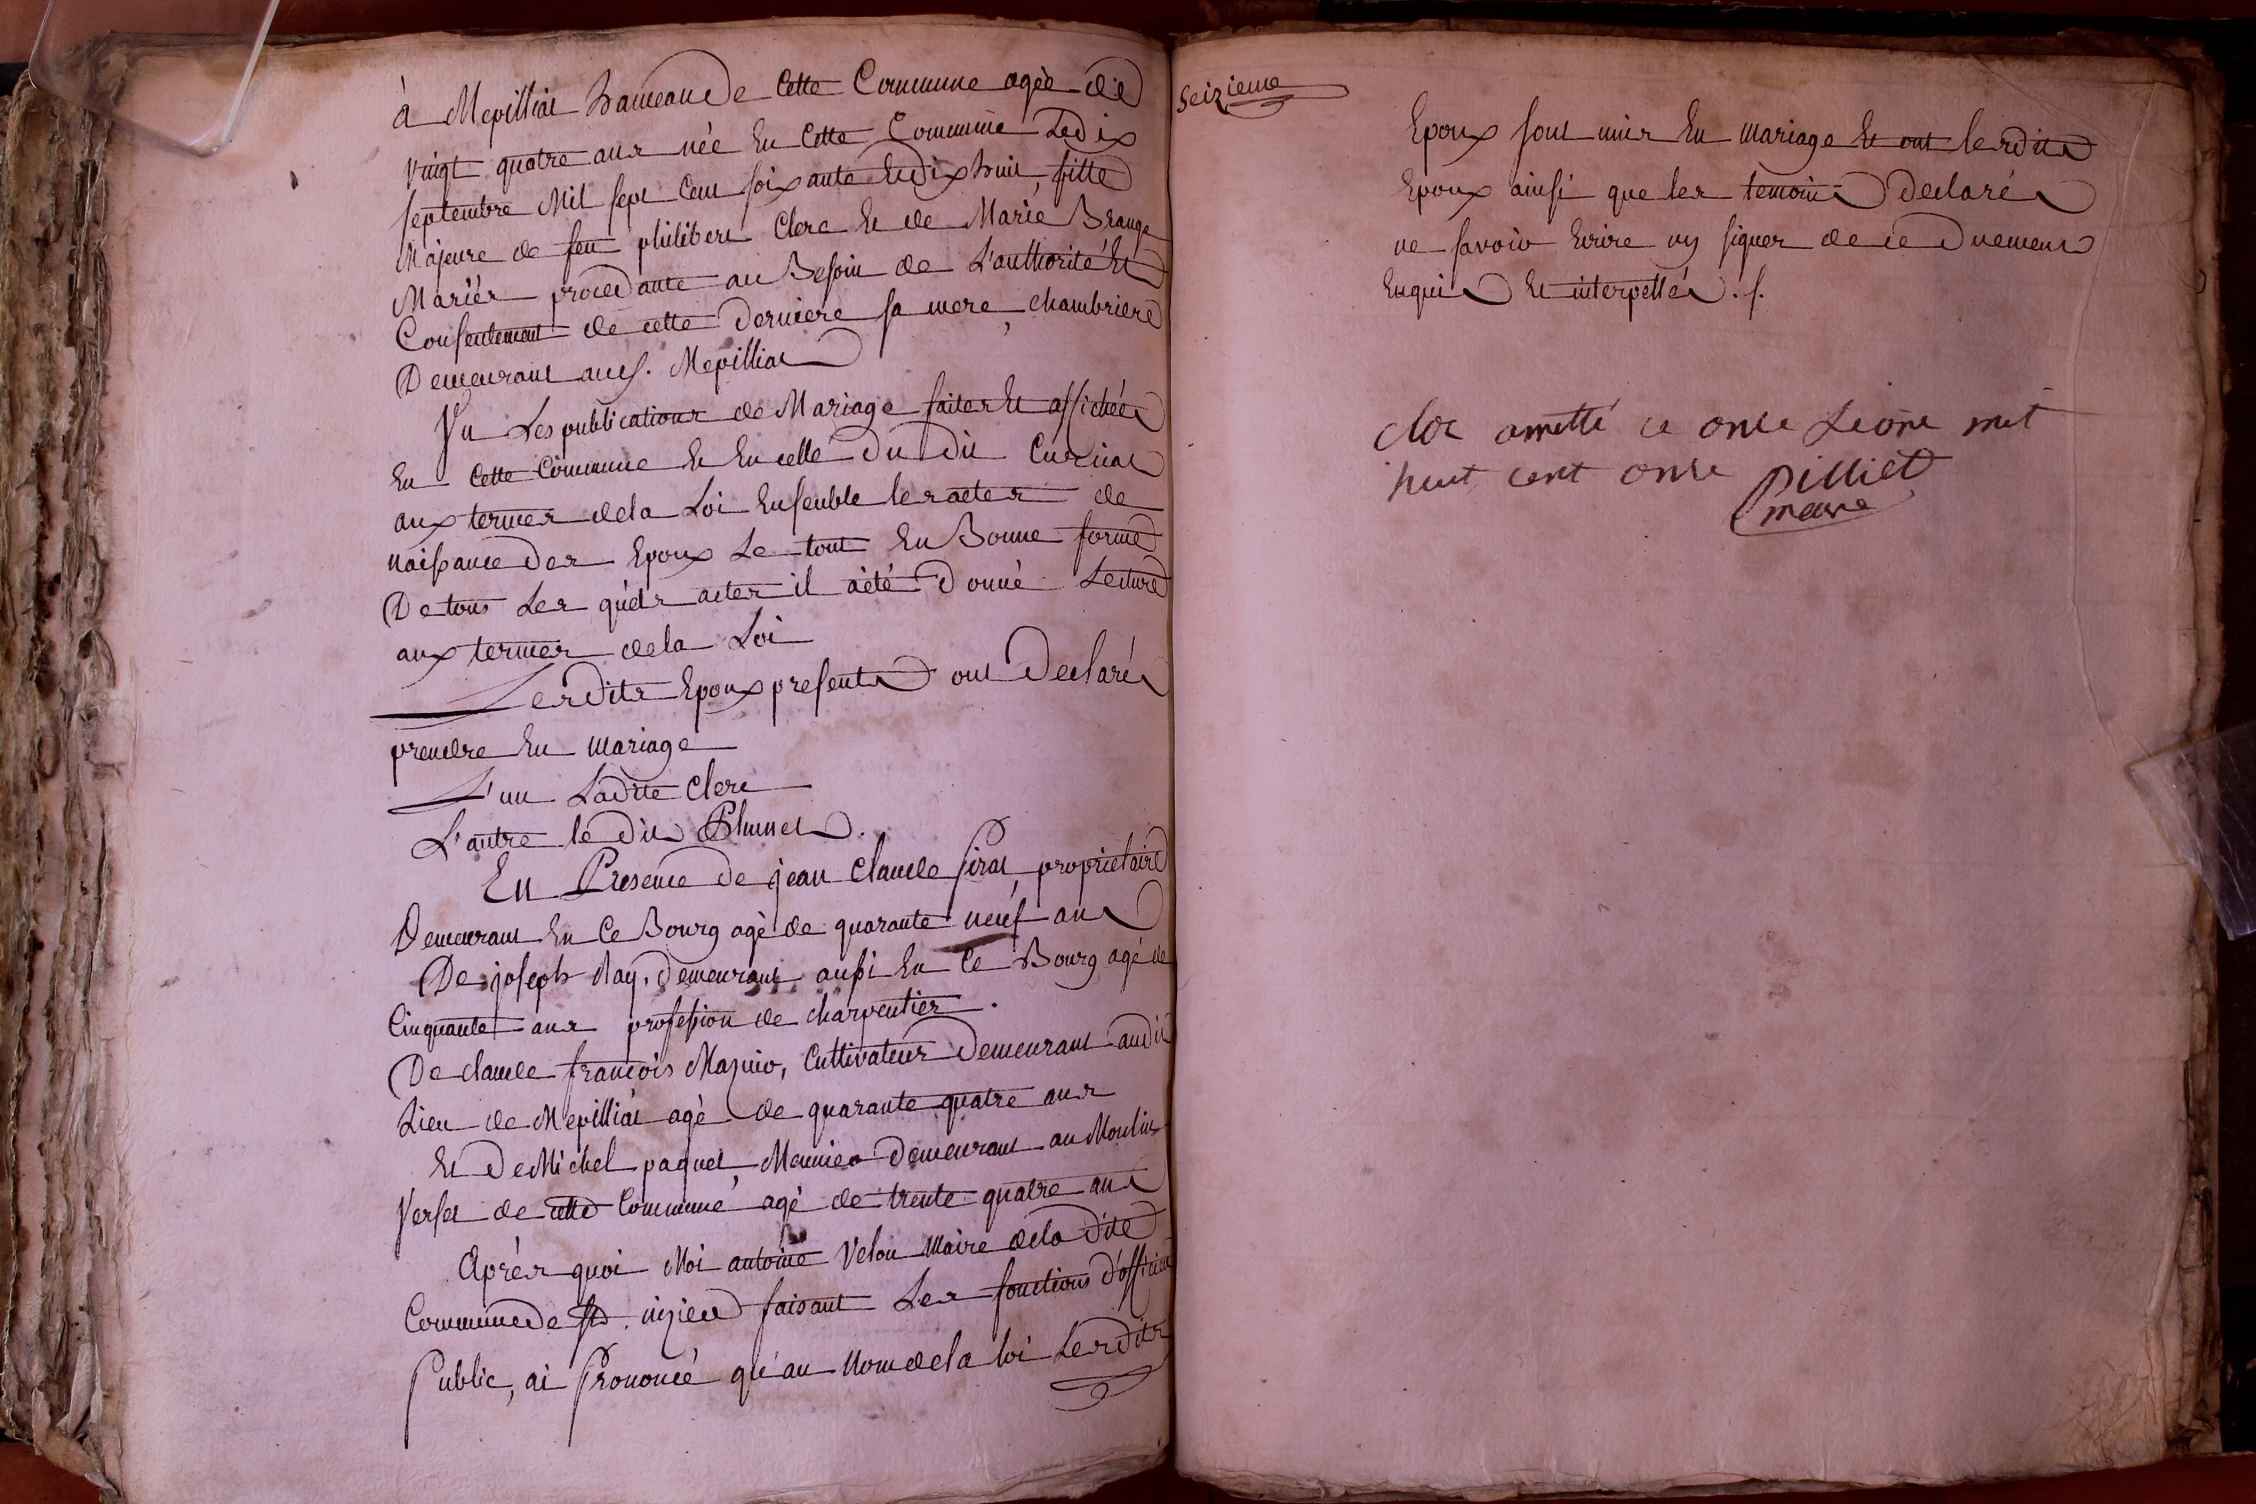 à Mépilliat hameau de cette Commune agée de
vingt quatre ans née En cette Commune Le dix
septembre Mil sept Cent soixante Et dix huit, fille
Majeure de feu philibert Clerc Et de Marie
Mariés procedante au Besoin de L'authorité Et
Consentement de cette derniere sa mere, chambriere
Demeurant aus. Mepilliat
Vu Les publications de Mariage faites Et affichées
En cette Commune Et En celle Du Dit Curciat
aux termes de la Loi Ensemble les actes de
naissance des Epoux Le tout En Bonne forme
De tous Les quels actes il a été Donné Lecture
aux termes de la Loi
Lesdits Epoux presents ont Declarés
prendre En mariage
L'un Ladite Clerc
L'autre le Dit
En Presence de jean Claude Pirat, proprietaire
Demeurant En Ce Bourg agé de quarante neuf ans
De joseph Ray, Demeurant aussi En Ce Bourg agé de
Cinquante ans profession de charpentier.
De claude françois Mazuir, Cultivateur Demeurant audit
Lieu de Mépilliat agé de quarante quatre ans
Et De Michel paquet, Meunier Demeurant au Moulin
Verset de cette Commune agé de trente quatre ans
Après quoi Moi antoine Velon Maire de la dite
Commune de St. nizier faisant Les fonctions d'officier
Public, ai Prononcé qu'au Nom de la loi Lesdits
Seizieme
Epoux sont unis En mariage Et ont lesdits
Epoux ainsi que les temoins Declarés
ne savoir Ecrire ny signer de ce Duement
Enquis Et interpellés. /.
clos arretté ce onze mil
huit cent onze Pilliet
maire